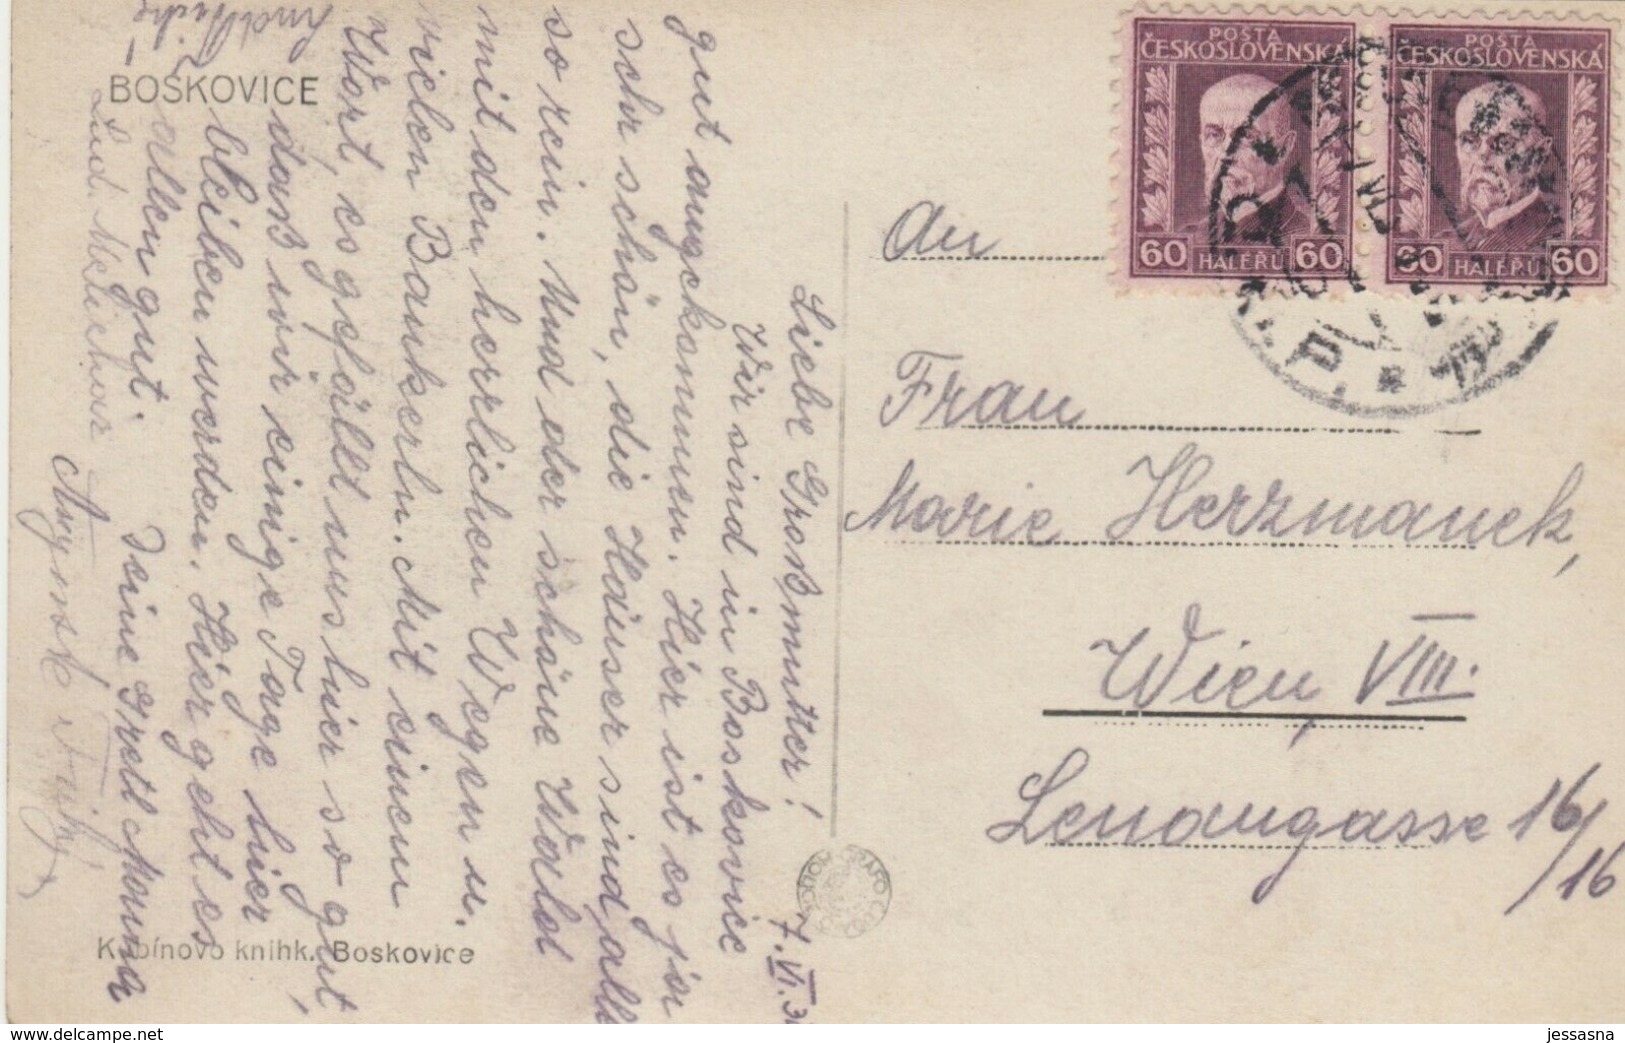 BOSKOVICE
7. VI. 3
Liebe Großmutter!
Wir sind in Boskovice
gut angekommen. Hier ist es ja
sehr schön, die Häuser sind alle
so rein. Und der schöne Wald
mit den herrlichen Wegen u.
vielen Bankerln. Mit einem
Wort, es gefällt uns hier so gut,
dass wir einige Tage hier
bleiben werden. Hier geht es
allen gut.
Deine Gretl Mama
Lud. Melichar
Kubínovo knihk. Boskovice
POŠTA
ČESKOSLOVENSKÁ
60 HALÉŘŮ 60
POŠTA
ČESKOSLOVENSKÁ
60 HALÉŘŮ 60
An
Frau
Marie Herzmanek,
Wien VIII.
Lenaugasse 16/
16
delcampe.net
jessasna